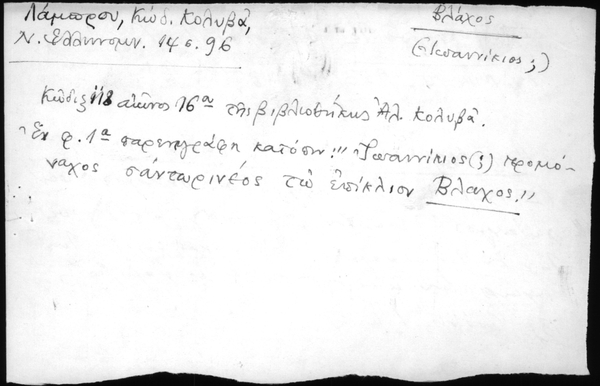 Λάμπρου, Κώδ. Κολυβᾶ,
Ν. Ἑλληνομν. 14 σ. 96
Βλάχος
(Ἰωαννίκιος;)
Κώδιξ 118 αἰῶνος 16ου τῆς βιβλιοθήκης Ἀλ. Κολυβᾶ.
Ἐν φ. 1α παρενεγράφη κατόπιν: "Ἰωαννίκιος(;) ἱερομό-
ναχος σάντωρινέος τῶ ἐπίκλιον Βλαχος."